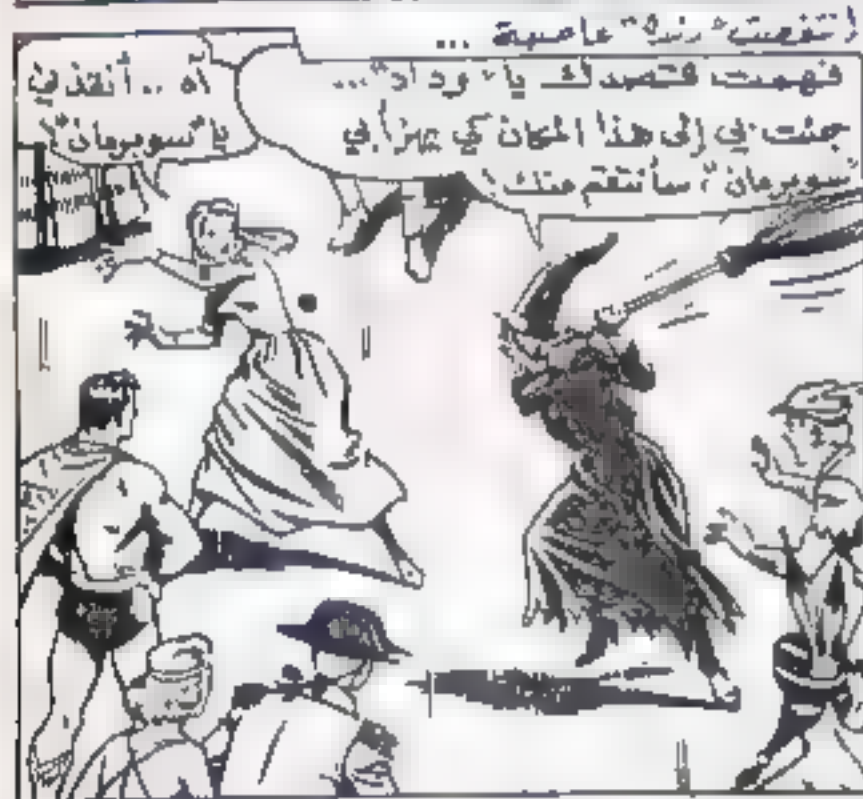 عاصبة ...
فهمت قصدك يا "وداد"...
جئت بي إلى هذا المكان كي يهزأ بي
"سوبرمان"! سأنتقم منك!
آه .. أنقذني
يا "سوبرمان"!